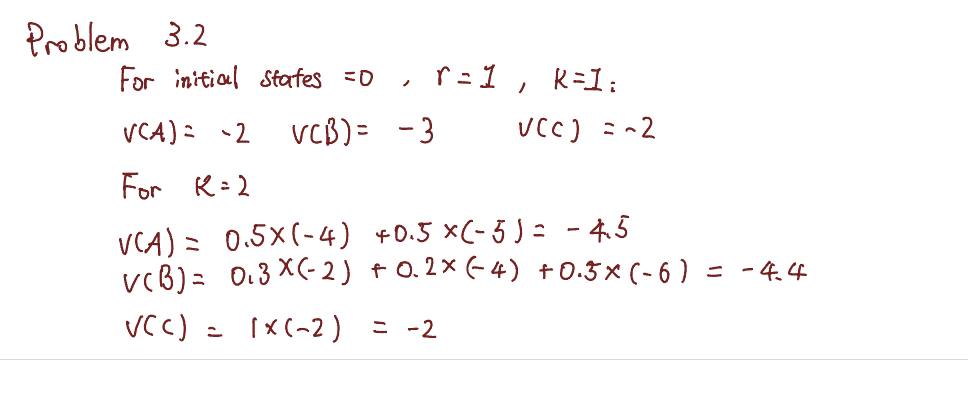 Problem 3.2
For initial states =0 , r = 1 , K=1:
V(A) = -2 V(B) = -3 V(C) = -2
For K=2
V(A) = 0.5×(-4) +0.5 ×(-5) = -4.5
V(B) = 0.3×(-2) + 0.2×(-4) +0.5×(-6) = -4.4
V(C) = 1×(-2) = -2